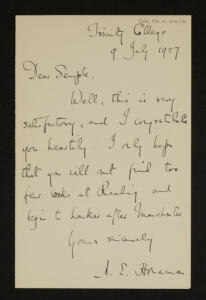 Trinity College
9 July 1927
Dear Semple,
Well, this is very
satisfactory, and I congratulate
you heartily. I only hope
that you will not find too
few books at Reading and
begin to hanker after Manchester
Yours sincerely
A. E. Housman